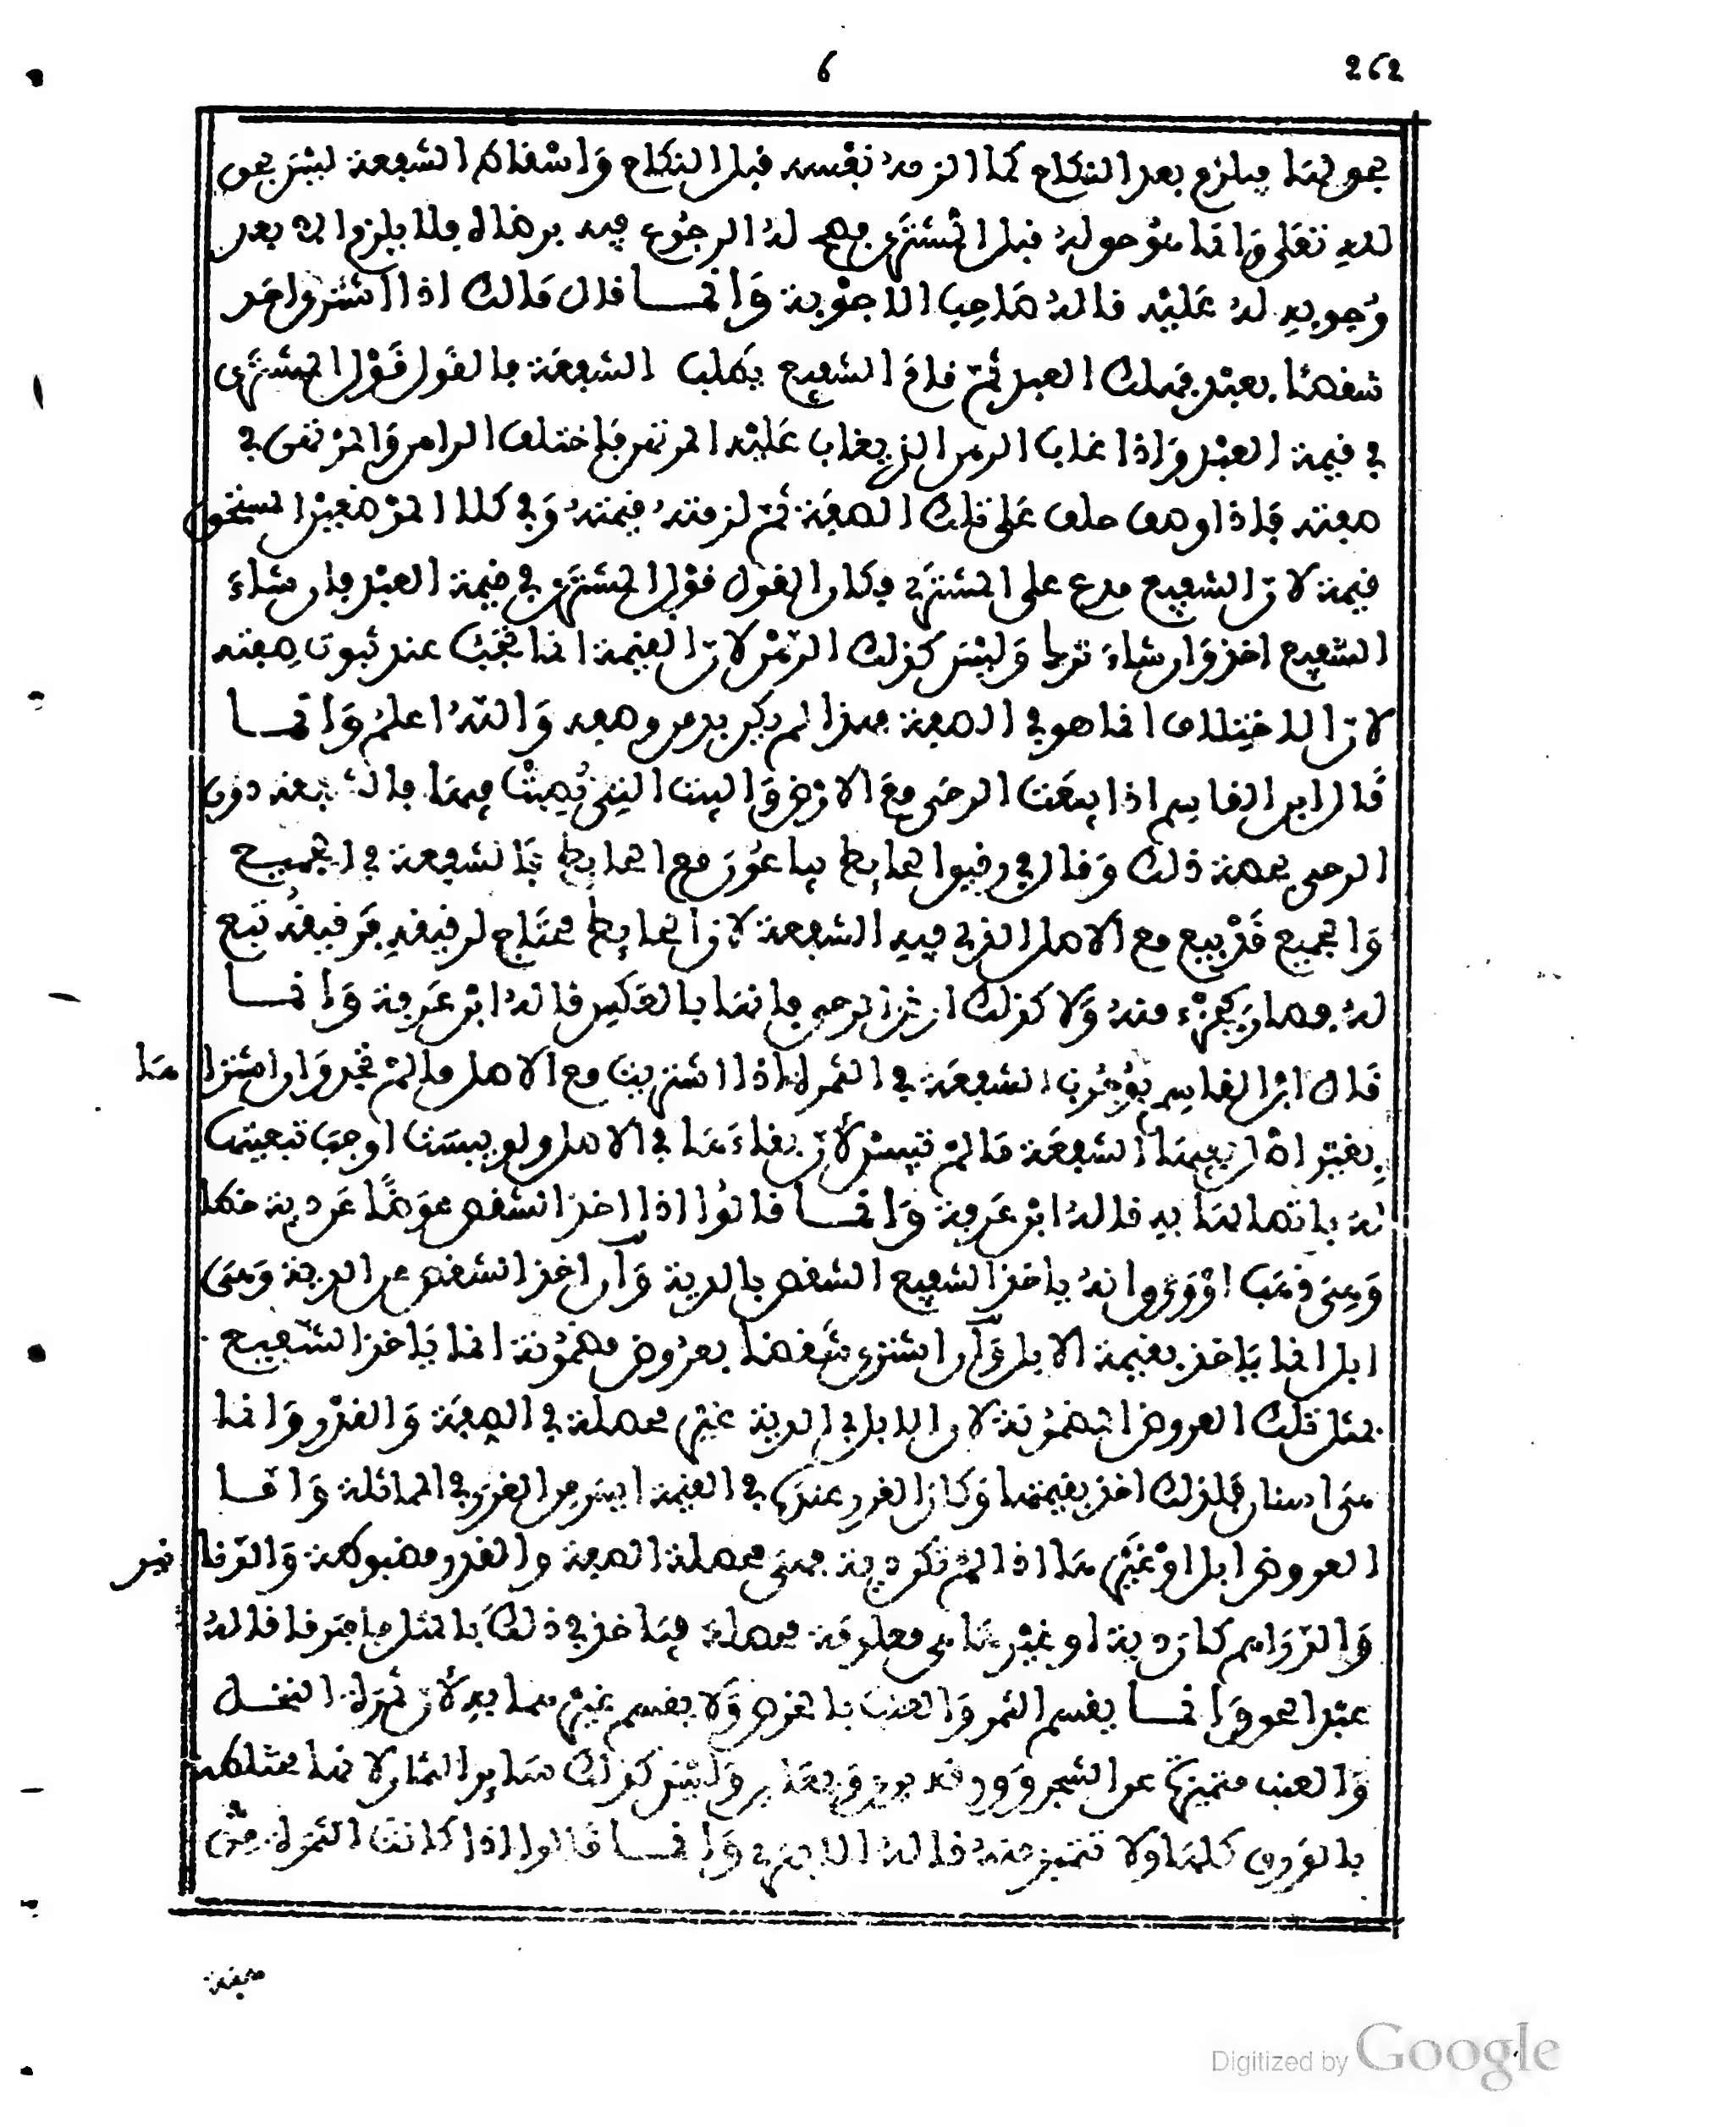 6 262
بحق لها فيلزم بعد النكاح كما الزمه نفسه قبل النكاح وَاسْقاط الشفعة ليْسَ بحق
لله تعلى وَانما هوَ حق له قبل المشترى فصح له الرجُوع فيه برضاه فلا يلزم الا بعد
وُجوبه له عَليْه قاله صَاحِب الاجْوبة وَانمـــا قال مَالك اذا اشترى احَد
شقصًا بعبْد فهلك العبد ثمّ قامَ الشفيع يَطلب الشفعَة فالقَول قَوْل المشترَى
في قيمة العبْد وَاذا غاب الرهن الذي يغاب عَليْه المرتهن فاختلف الراهن وَالمرْتهن في
صفته فاذا وصف حلف عَلى تلك الصفَة ثمّ لزمته قيمته وَفي كلا الموْضعيْن المستحق
قيمة لانّ الشفيع مدع على المشترَي فكان القول قوْل المشترَى في قيمة العبْد فان شاءَ
الشفيع اخذ وَان شاءَ ترك وَليْسَ كذلك الرّهْن لانّ القيمة انما تجبُ عند ثبوت صِفته
لانّ الاختِلاف انما هو في الصفة فهذا لم يكن بد من وصفه وَاللهُ اعلمُ وَانمـــا
قَال ابن القاسِم اذا بيعَت الرحَى معَ الارْض وَالبيت التِي نُصِبتْ فيهَا فالشفعة دون
الرحى بحصة ذلك وَقال في رقيق الحايط يباعُونَ مع الحايط فَالشفعة في الجميع
وَالجميع قَدْ بيع مع الاصل الذي فيه الشفعة لان الحايط محتَاج لرقيقهِ فرَقيقُه تبَع
لهُ فصار كجزْء منهُ وَلا كذلك الرحى فانها بالعَكس قالهُ ابْن عَرفة وَانمـــا
قَال ابْن القاسِم بوُجُوب الشفعَة في الثمرة اذا اشتريت مع الاصل مالمْ تجد وَان اشترا هَا
بغيْر اصْل ففيهَا الشفعَة مَا لمْ تيبسْ لأنّ بقاءَهَا في الاصل ولو يبسَت اوجبَ تبعيتهَا
لهُ باتصالهَا به قالهُ ابْن عَرفة وَانمـــا قالوُا اذا اخذ الشقص عوَضًا عَن دية خطا
وَهِىَ ذهَب اوْ وَرِق انهُ ياخذ الشفيع الشقص بالدية وَان اخذ الشقص عن الدية وَهىَ
ابل انما يَاخذ بقيمة الابل وَان اشترى شقصًا بعرُوض مضمُونة انما يَاخذ الشّفيع
بمثل تلك العروض المضمُونة لان الابل في الدية غيْر محصلة في الصفَة وَالقدْر وَانما
هىَ اسنان فلذلك اخذ بقيمتهَا وَكان الغرر عندَهُ في القيمة ايسَر من الغرَر في المماثلة وَامّـا
العروض ابل اوْ غيْرهَا اذا لمْ تكن دية فهىَ محصلة الصفة والقدر مضبوطة وَالدّنا نير
وَالدّرَاهم كانَ دية او غيْرهَا هى معلومَة محصلة فيَاخذ في ذلكَ بالمثل فافترقا قالهُ
عبْد الحق وَانمـــا يقسم الثمر وَالعنب بالخرص وَلا يقسم غيْرهمَا به لأنّ ثمَرة النخـل
وَالعنب متميزَة عن الشجر وَوَرقه وَليْسَ كذلك سَاير الثمار لانها مختلطة
بالوَرق كلهَا ولا تتميز منهُ قالهُ الابهرى وَانمـــا قَالوا اذا كانت الثمَرة